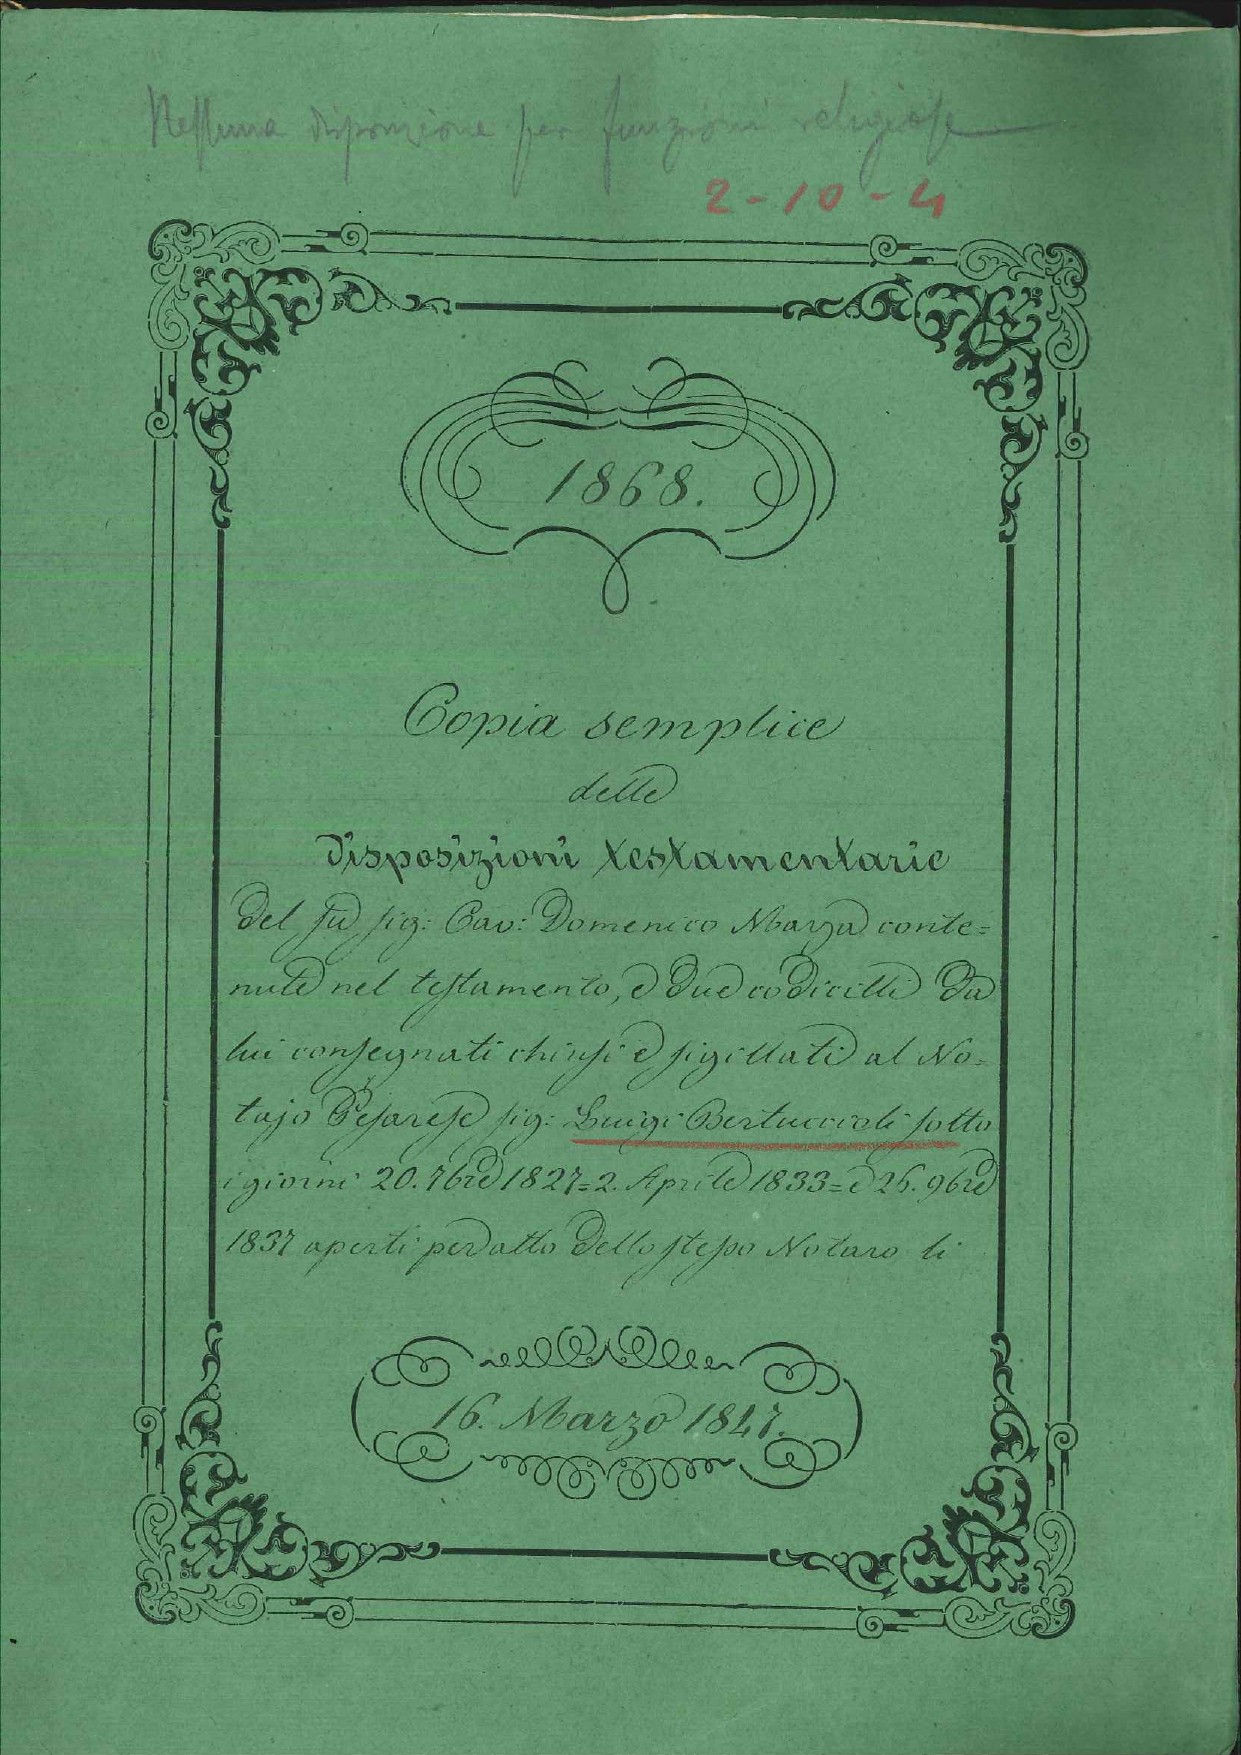 Nessuna disposizione per funzioni religiose
2-10-4
1868.
Copia semplice
delle
disposizioni testamentarie
del fù sig: Cav: Domenico Mazza conte=
nute nel testamento, e due codicilli da
lui consegnati chiusi e sigillati al No=
tajo Pesarese sig: Luigi Bertuccioli sotto
i giorni 20. 7bre 1827=2. Aprile 1833= e 26. 9bre
1837 aperti per atto dello stesso Notaro li
16. Marzo 1847.